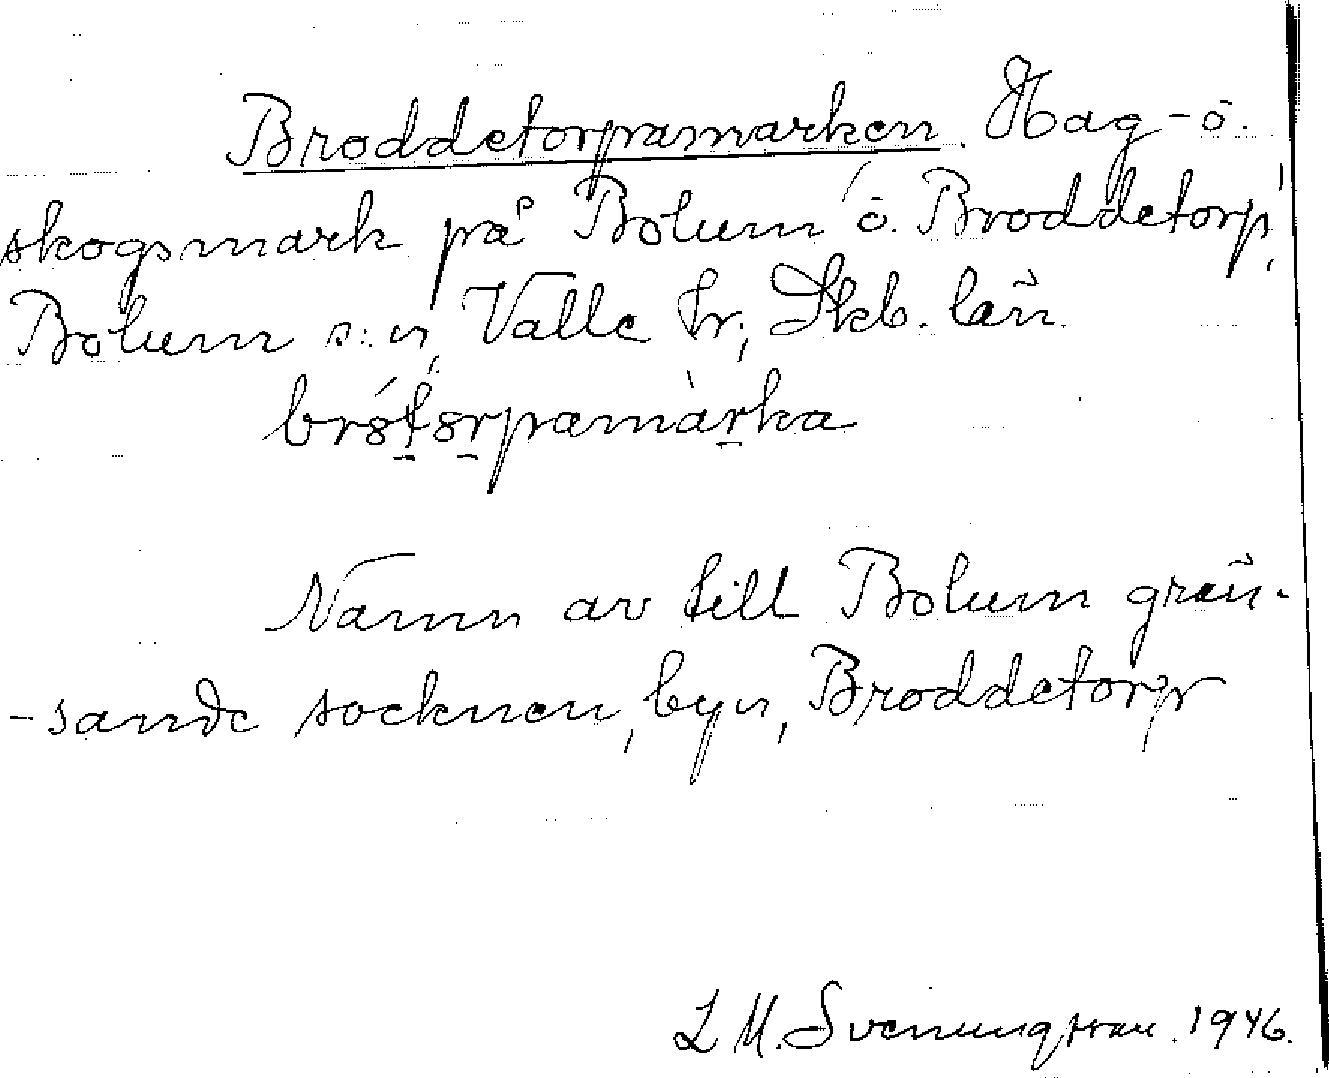 Broddetorpamarken. Hag- o.
skogsmark på Bolum o. Broddetorp,
Bolum s:n, Valle hr, Skb. län
Namn av till Bolum grän-
-sande socknen, byn, Broddetorp
L M. Svenungsson. 1946.